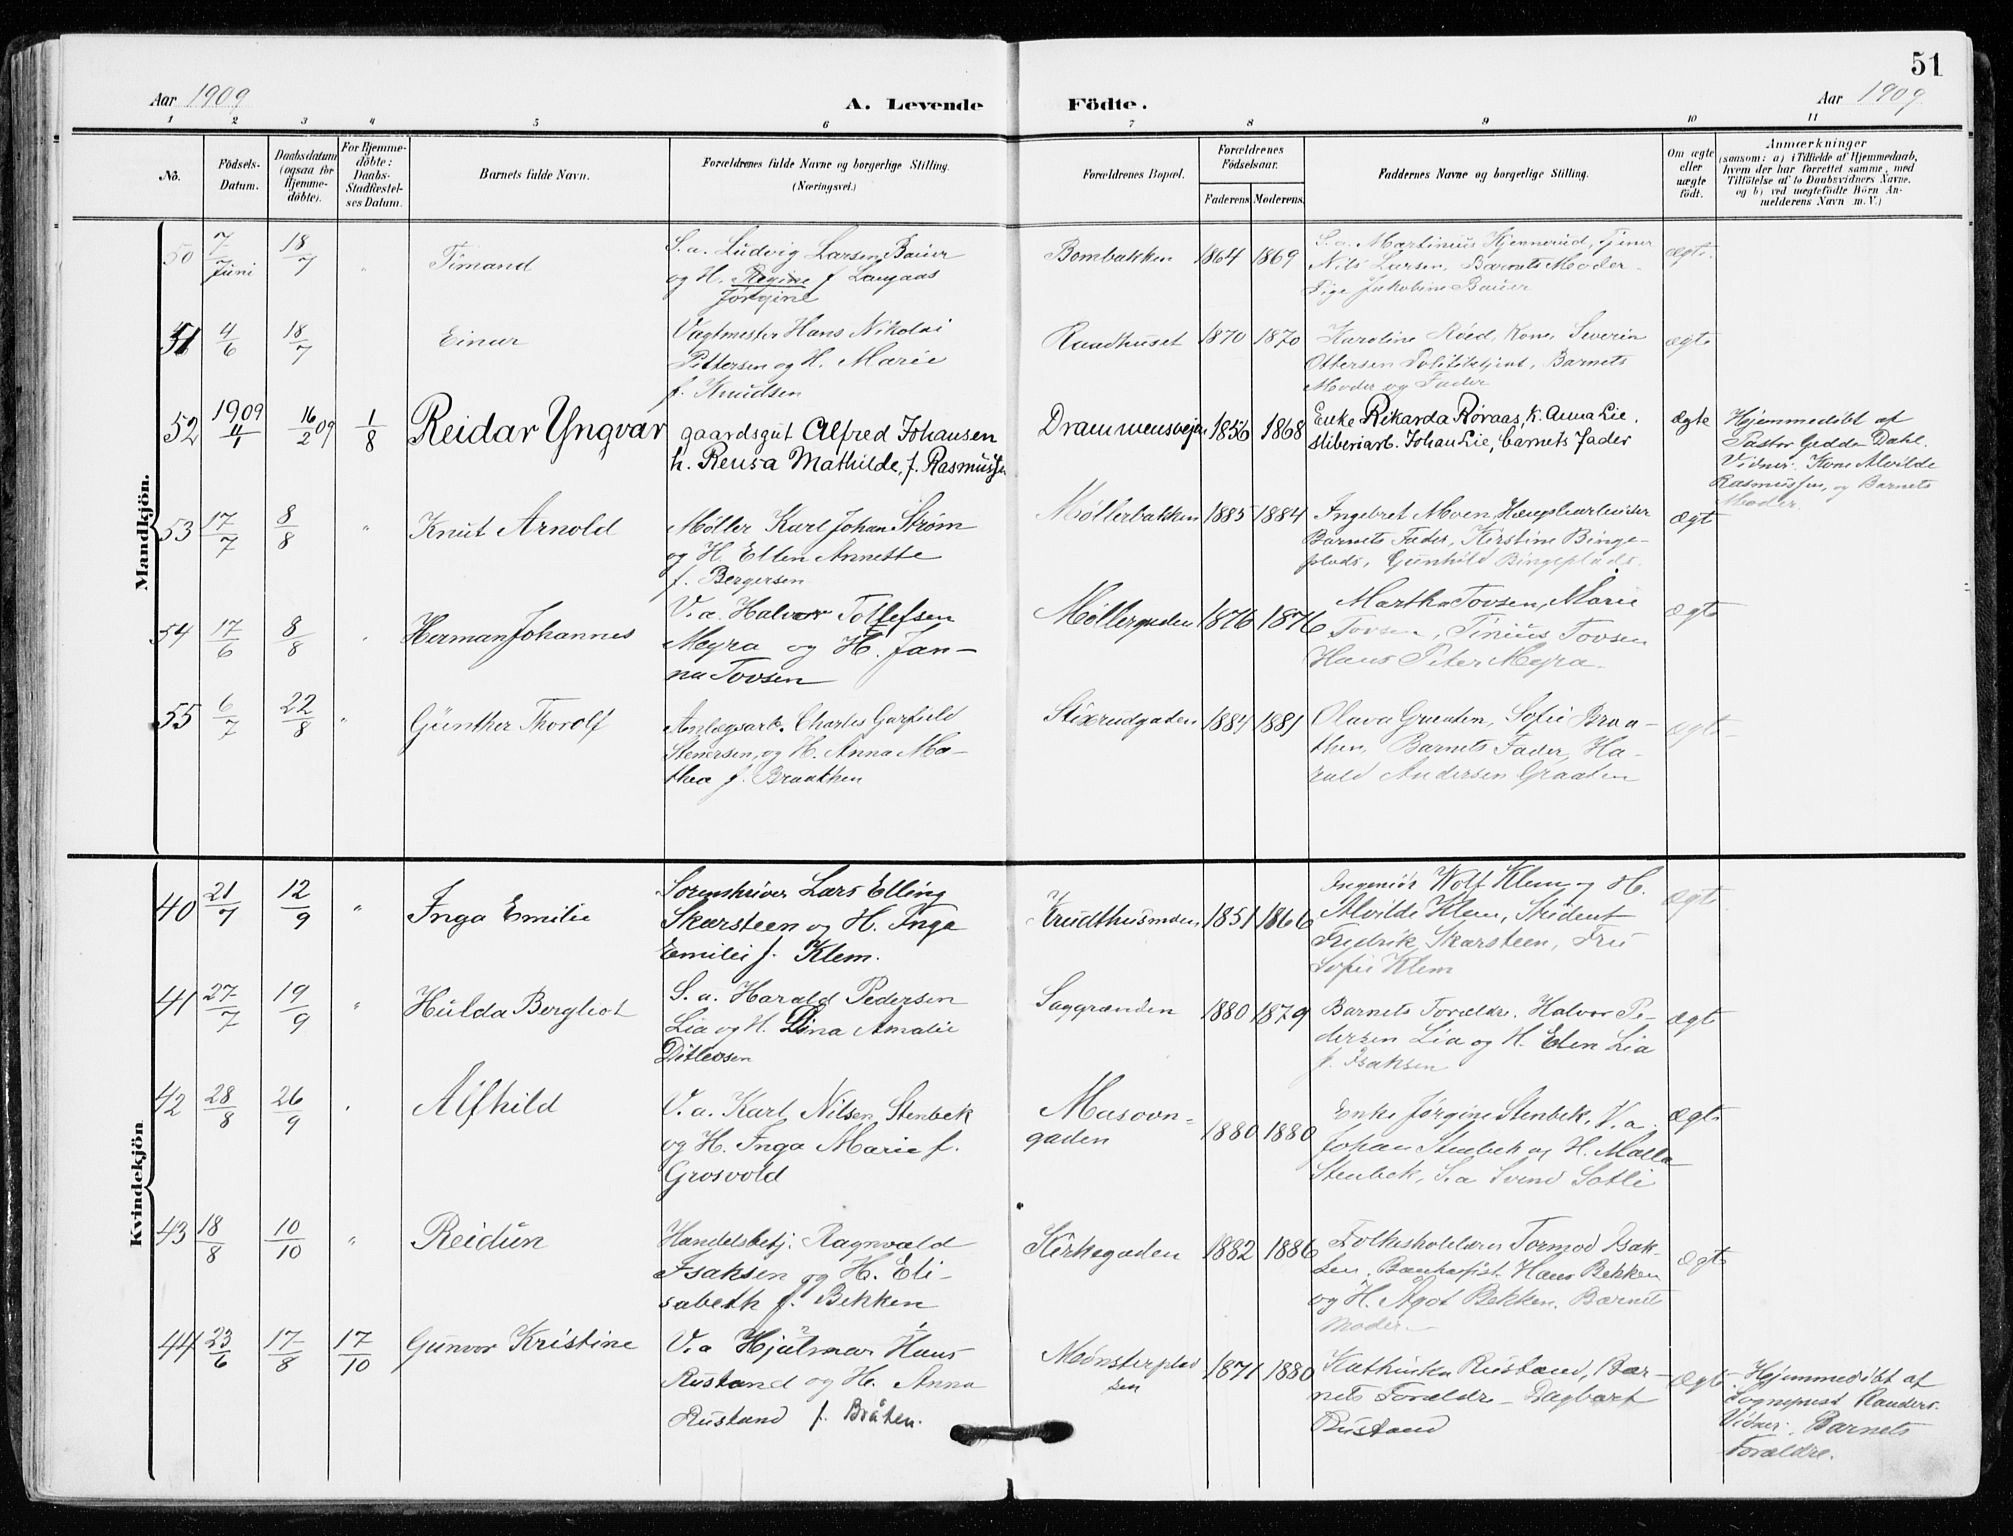 51
Aar 1909
A. Levende
Födte.
Aar 1909
1 2 3 4 5 6 7 8 9 10 11
No.
Födsels-
Datum.
Daabsdatum
(ogsaa for
Hjemme-
döbte).
For Hjemme-
döbte:
Daabs-
Stadfæstel-
ses Datum.
Barnets fulde Navn.
Forældrenes fulde Navne og borgerlige Stilling.
(Næringsvei.)
Forældrenes Bopæl.
Forældrenes
Födselsaar.
Faderens Moderens
Faddernes Navne og borgerlige Stilling.
Om ægte
eller
uægte
födt.
Anmærkninger
(saasom: a) i Tilfælde af Hjemmedaab,
hvem der har forrettet samme, med
Tilföielse af to Daabsvidners Navne,
og b) ved uegtefödte Börn An-
melderens Navn m. V.)
Mandkjön.
50
7/Juni
18/7
"
Timand
S.a. Ludvig Larsen Bauer
og H. Regine f. Laugaas
Jørgine
Bombakken
1864 1869
S.a. Martinius Hjennerud, Tjener
Nils Larsen, Barnets Moder
Pige Jakobine Bauer
ægte
51
4/6
18/7
Einar
Vagtmester Hans Nikolai
Pettersen og H. Marie
f. Knudsen
Raadhuset
1870 1870
Karoline Röed, Kone, Severin
Ottersen Politibetjent, Barnets
Moder og Fader
ægte
52
1909
11/1
16/2 09
1/8
Reidar Yngvar
gaardsgut Alfred Johansen
h. Reusa Mathilde, f. Rasmussen
Drammensvejen
1856 1868
Enke Rikarda Røraas, k. Anna Lie,
stiberiarb. Johan Lie, barnets fader
ægte
Hjemmedöbt af
Pastor Gedde Dahl.
Vidner: Kone Alvilde
Rasmussen, og Barnets
Moder.
53
17/7
8/8
"
Knut Arnold
Møller Karl Johan Strøm
og H. Ellen Annette
f. Bergersen
Møllerbakken
1885 1884
Ingebret Moen,
Barnets Fader, Kirstine Binge-
plads, Gunhild Bingeplads.
ægt
54
17/6
8/8
"
Herman Johannes
V.a. Halvor Tollefsen
Meyra og H. Jan-
na Tovsen
Møllergaden
1876 1876
Martha Tovsen, Marie
Tovsen, Tinius Tovsen
Hans Peter Mejra.
ægte
55
6/7
22/8
"
Günther Thorolf
Anlægsarb. Charles Garfield
Stenersen, og H. Anna Ma-
thea f. Braathen
Stixrudgaden
1884 1881
Olava Graaten, Sofie Braa-
then, Barnets Fader, Ha-
rald Andersen Graaten
ægte
Kvindekjön
40
21/7
12/9
"
Inga Emilie
Sorenskriver Lars Elling
Skarsteen og H. Inga
Emilie f. Klem.
Krudthusmoen
1851 1866
Ingeniör Wolf Klem og H.
Alvilde Klem, Student
Fredrik Skarsteen, Fru
Sofie Klem
ægte
41
27/7
19/9
"
Hulda Bergliot
S.a. Harald Pedersen
Lia og H. Lina Amalie
Ditlevsen
Saggrænden
1880 1879
Barnets Forældre. Halvor Pe-
dersen Lia og H. Elen Lia
f. Isaksen
ægte
42
28/8
26/9
Alfhild
V.a. Karl Nilsen Stenbek
og H. Inga Marie f.
Grosvold
Masovn-
gaden
1880 1880
Enke Jørgine Stenbek, V.a.
Johan Stenbek og H. Malla
Stenbek, S.a Svend Sotli
ægte
43
18/8
10/10
"
Reidun
Handelsbetj. Ragnvald
Isaksen og H. Eli-
sabeth f. Bekken
Kirkegaden
1882 1886
Folkeskolelærer Tormod Isak-
sen, Hans Bekken
og H. Agot Bekken. Barnets
Moder
ægte
44
23/6
17/8
17/10
Gunvor Kristine
V.a Hjalmar Hans
Rustand og H. Anna
Rustand f. Bråten.
Mønsterplad
sen
1871 1880
Kathinka Rustand, Bar-
nets Forældre - Dagbart
Rustand
ægte
Hjemmedöbt af
Sogneprest Randers.
Vidner: Barnets
Forældre.